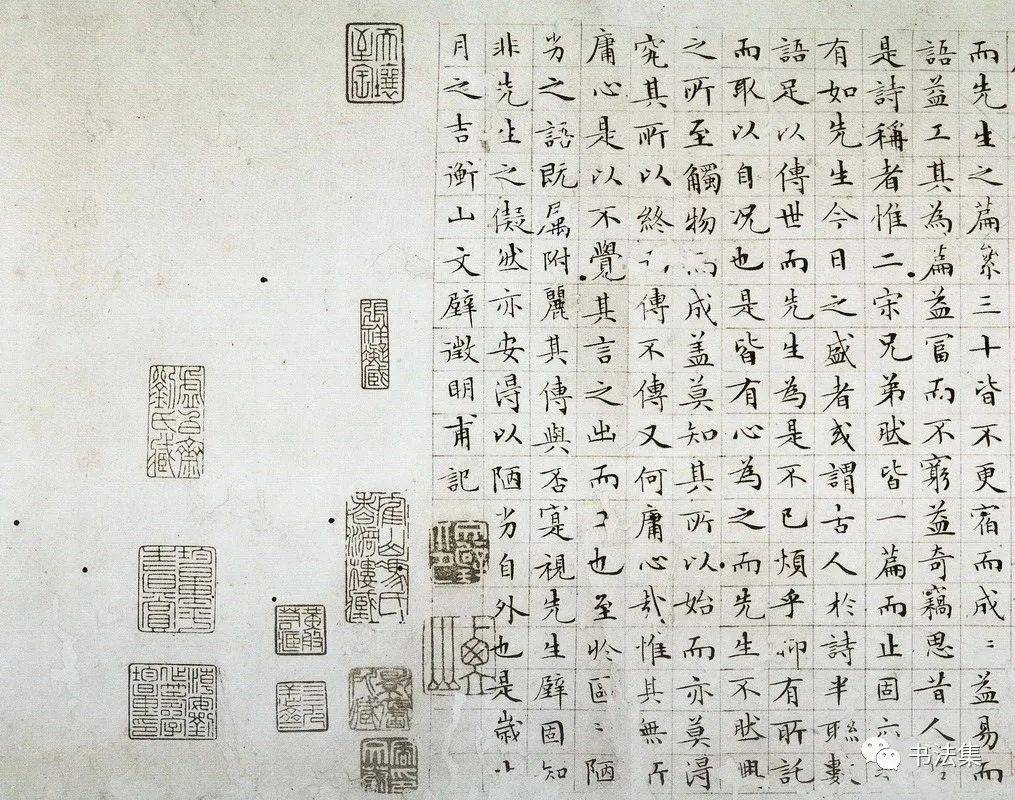 而先生之篇累三十皆不更宿而成〻益易而
語益工其為篇益冨而不窮益奇竊思昔人以
是詩稱者惟二宋兄弟然皆一篇而止固
有如先生今日之盛者或謂古人於詩半聮數
語足以傳世而先生為是不已煩乎抑有所託
而取以自况也是皆有心為之而先生不然興
之所至觸物而成盖莫知其所以始而亦莫得
究其所以終而傳不傳又何庸心哉惟其無所
庸心是以不覺其言之出而工也至於區〻陋
劣之語既屬附麗其傳與否寔視先生壁固知
非先生之儗然亦安得以陋劣自外也是歲十
月之吉衡山文壁徵明甫記
張祥凝藏
虛白齋劉氏藏
书法集